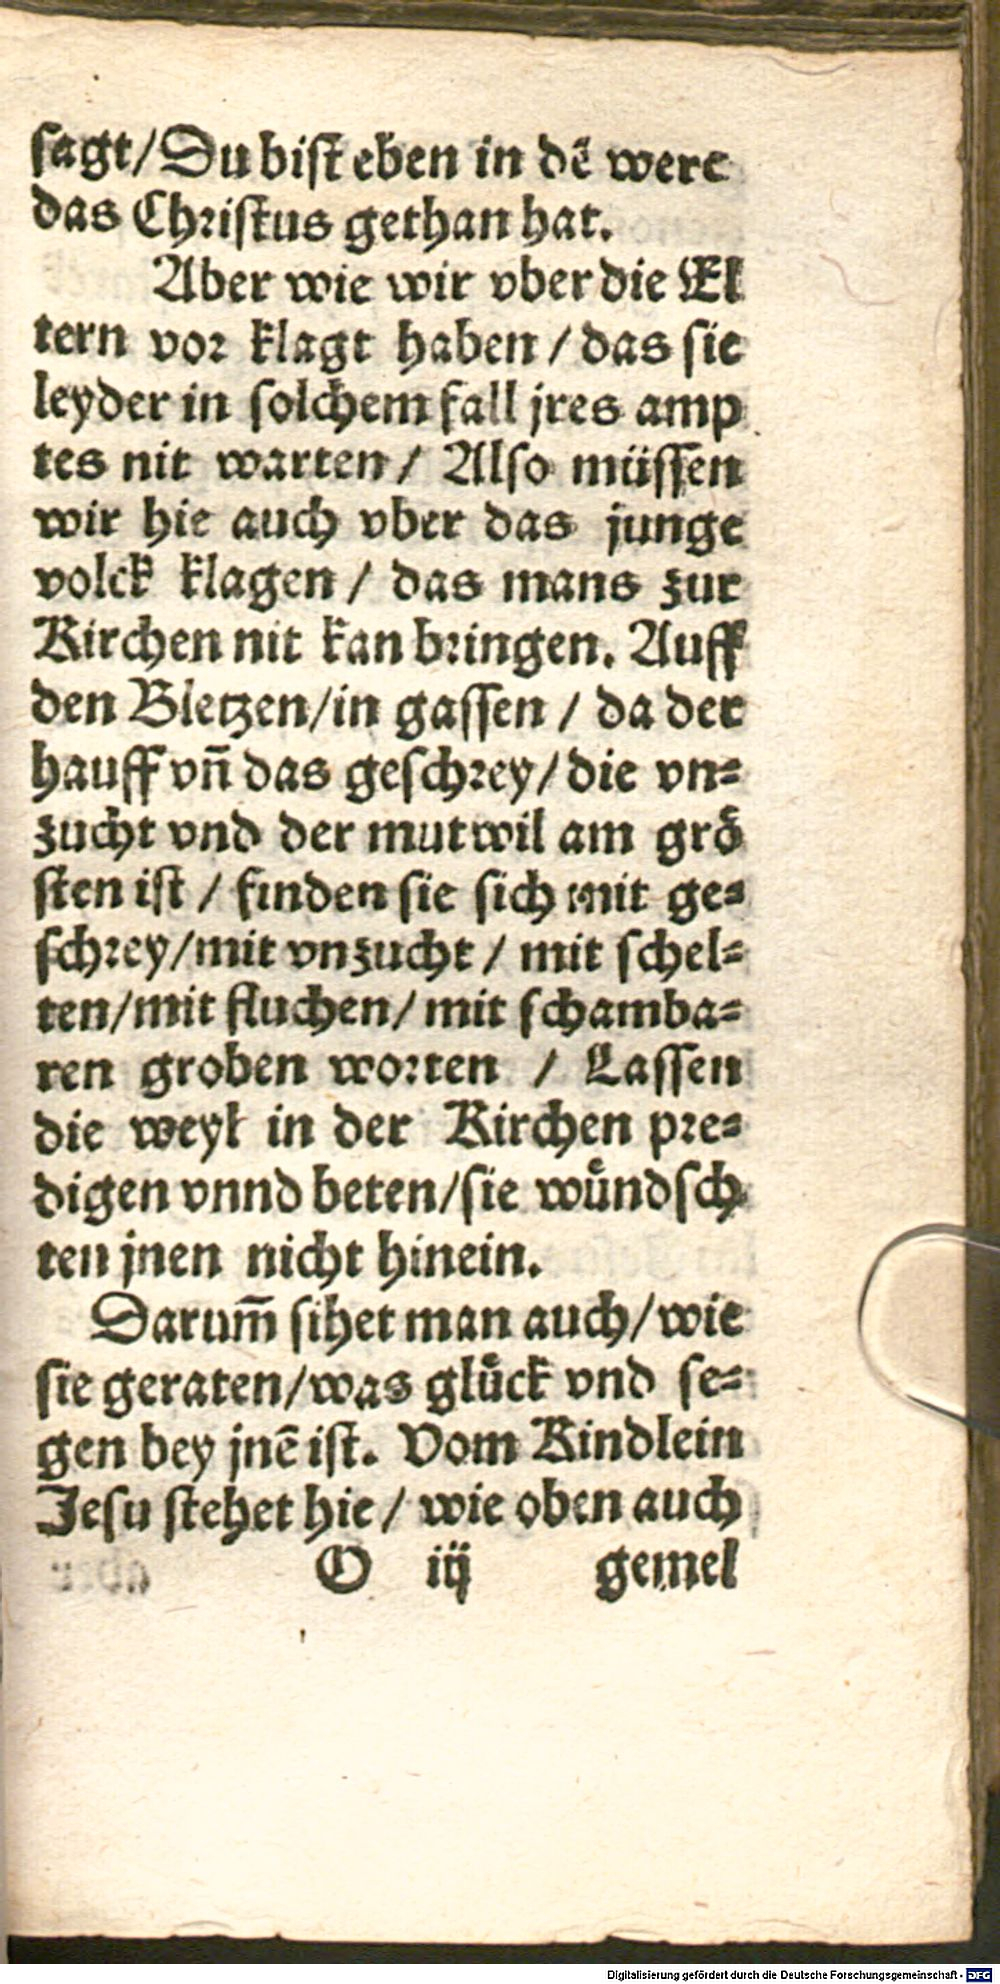 sagt/Du bist eben in dē werc
das Christus gethan hat.
Aber wie wir vber die El
tern vor klagt haben / das sie
leyder in solchem fall jres amp
tes nit warten / Also müssen
wir hie auch vber das junge
volck klagen / das mans zur
Kirchen nit kan bringen. Auff
den Bletzen/in gassen / da der
hauff vn̄ das geschrey/die vn⸗
zucht vnd der mutwil am grö
sten ist / finden sie sich mit ge⸗
schrey/mit vnzucht / mit schel⸗
ten/mit fluchen/mit schamba⸗
ren groben worten / Lassen
die weyl in der Kirchen pre⸗
digen vnnd beten/sie wuͤndsch
ten jnen nicht hinein.
Darum̄ sihet man auch/wie
sie geraten/was gluͤck vnd se⸗
gen bey jnē ist. Vom Kindlein
Jesu stehet hie / wie oben auch
O iij gemel
Digitalisierung gefördert durch die Deutsche Forschungsgemeinschaft - DFG